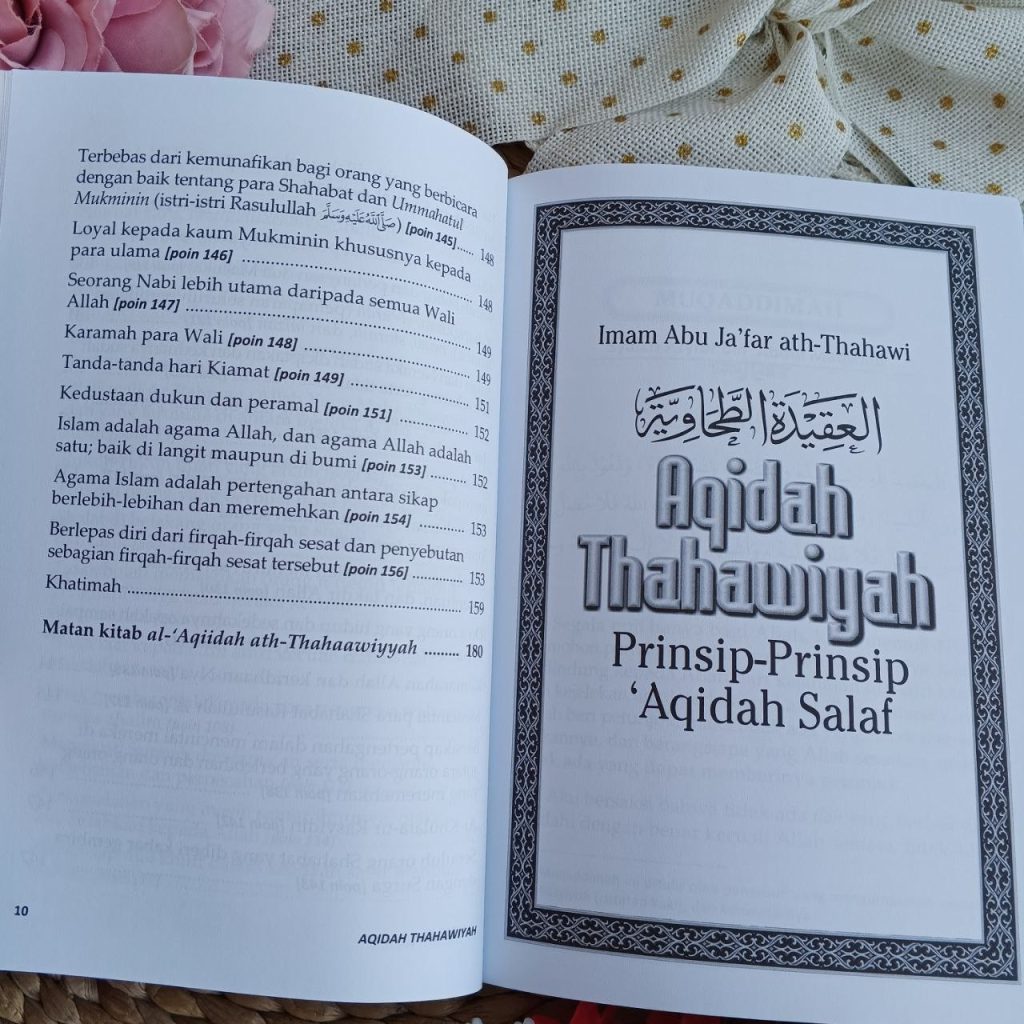 Terbebas dari kemunafikan bagi orang yang berbicara
dengan baik tentang para Shahabat dan Ummahatul
Mukminin (istri-istri Rasulullah ﷺ) [poin 145]...... 148
Loyal kepada kaum Mukminin khususnya kepada
para ulama [poin 146] ........ 148
Seorang Nabi lebih utama daripada semua Wali
Allah [poin 147] ........ 149
Karamah para Wali [poin 148] ........ 149
Tanda-tanda hari Kiamat [poin 149] ........ 151
Kedustaan dukun dan peramal [poin 151] ........ 152
Islam adalah agama Allah, dan agama Allah adalah
satu; baik di langit maupun di bumi [poin 153] ........ 152
Agama Islam adalah pertengahan antara sikap
berlebih-lebihan dan meremehkan [poin 154] ........ 153
Berlepas diri dari firqah-firqah sesat dan penyebutan
sebagian firqah-firqah sesat tersebut [poin 156] ........ 153
Khatimah ........ 159
Matan kitab al-‘Aqiidah ath-Thahaawiyyah ......... 180
10
AQIDAH THAHAWIYAH
Imam Abu Ja’far ath-Thahawi
العقيدة الطحاوية
Aqidah
Thahawiyah
Prinsip-Prinsip
‘Aqidah Salaf
MUQADDIMAH